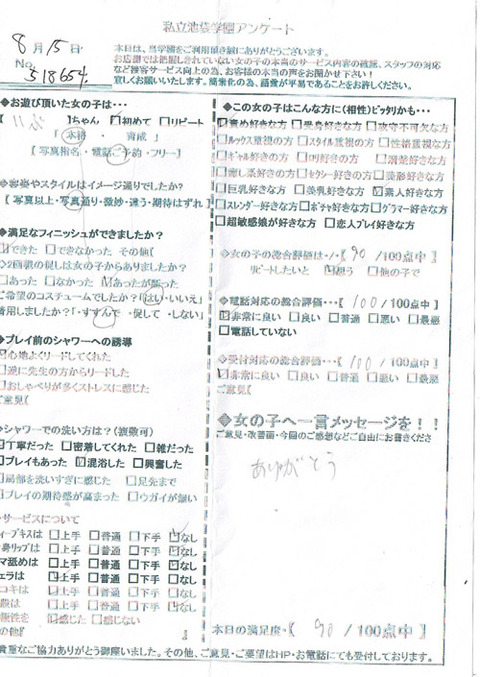 私立池袋学園アンケート
8月15日
No. 518654
本日は、当学園をご利用頂き誠にありがとうございます。
お店側では把握しきれていない女の子の本当のサービス内容の確認、スタッフの対応
など接客サービス向上の為、お客様の本当の声をお聞かせ下さい!
宜しくお願いいたします。
◆お遊び頂いた女の子は…
ちゃん 初めて □リピート
「本格・育成」
【写真指名・電話ご予約・フリー】
◇容姿やスタイルはイメージ通りでしたか?
【写真以上・写真通り・微妙・違う・期待はずれ】
◆満足なフィニッシュができましたか?
できた □できなかった その他(
2回戦の促しは女の子からありましたか?
あった □なかった
ご希望のコスチュームでしたか?「はい・いいえ」
着用しましたか?
◆プレイ前のシャワーへの誘導
心地よくリードしてくれた
逆に先生の方からリードした
おしゃべりが多くストレスに感じた
ご意見(
◆シャワーでの洗い方は?(複数可)
丁寧だった □密着してくれた □雑だった
プレイもあった 混浴した □興奮した
局部を洗いすぎに感じた □足先まで
プレイの期待感が高まった □ウガイが無い
サービスについて
ィープキスは □上手 □普通 □下手 なし
身リップは □上手 □普通 □下手 なし
マ舐めは □上手 □普通 □下手 なし
ェラは 上手 □普通 □下手 □なし
コキは □上手 □普通 □下手 なし
□上手 □普通 □下手 なし
感じた □感じない
の他『 』
◆この女の子はこんな方に(相性)ピッタリかも…
責め好きな方 □受身好きな方 □攻守不可欠な方
□ルックス重視の方 □スタイル重視の方 □性格重視な方
□ギャル好きの方 □ロリ好きの方 □清楚好きな方
□癒し系好きの方 □セクシー好きの方 □美形好きな方
□巨乳好きな方 □美乳好きな方 素人好きな方
□スレンダー好きな方 □ポチャ好きな方 □グラマー好きな方
□超敏感娘が好きな方 □恋人プレイ好きな方
◇女の子の総合評価は…【 90 /100点中】
リピートしたいと 想う □他の子で
◆電話対応の総合評価…【 100 /100点中】
非常に良い □良い □普通 □悪い □最悪
□電話していない
◇受付対応の総合評価…【 100 /100点中】
非常に良い □良い □普通 □悪い □最悪
ご意見(
◆女の子へ一言メッセージを!!
ご意見・改善面・今回のご感想などご自由にお書きくださ
ありがとう
本日の満足度・【 90 /100点中】
貴重なご協力ありがとう御座いました。その他、ご意見・ご要望はHP・お電話にても受付しております。